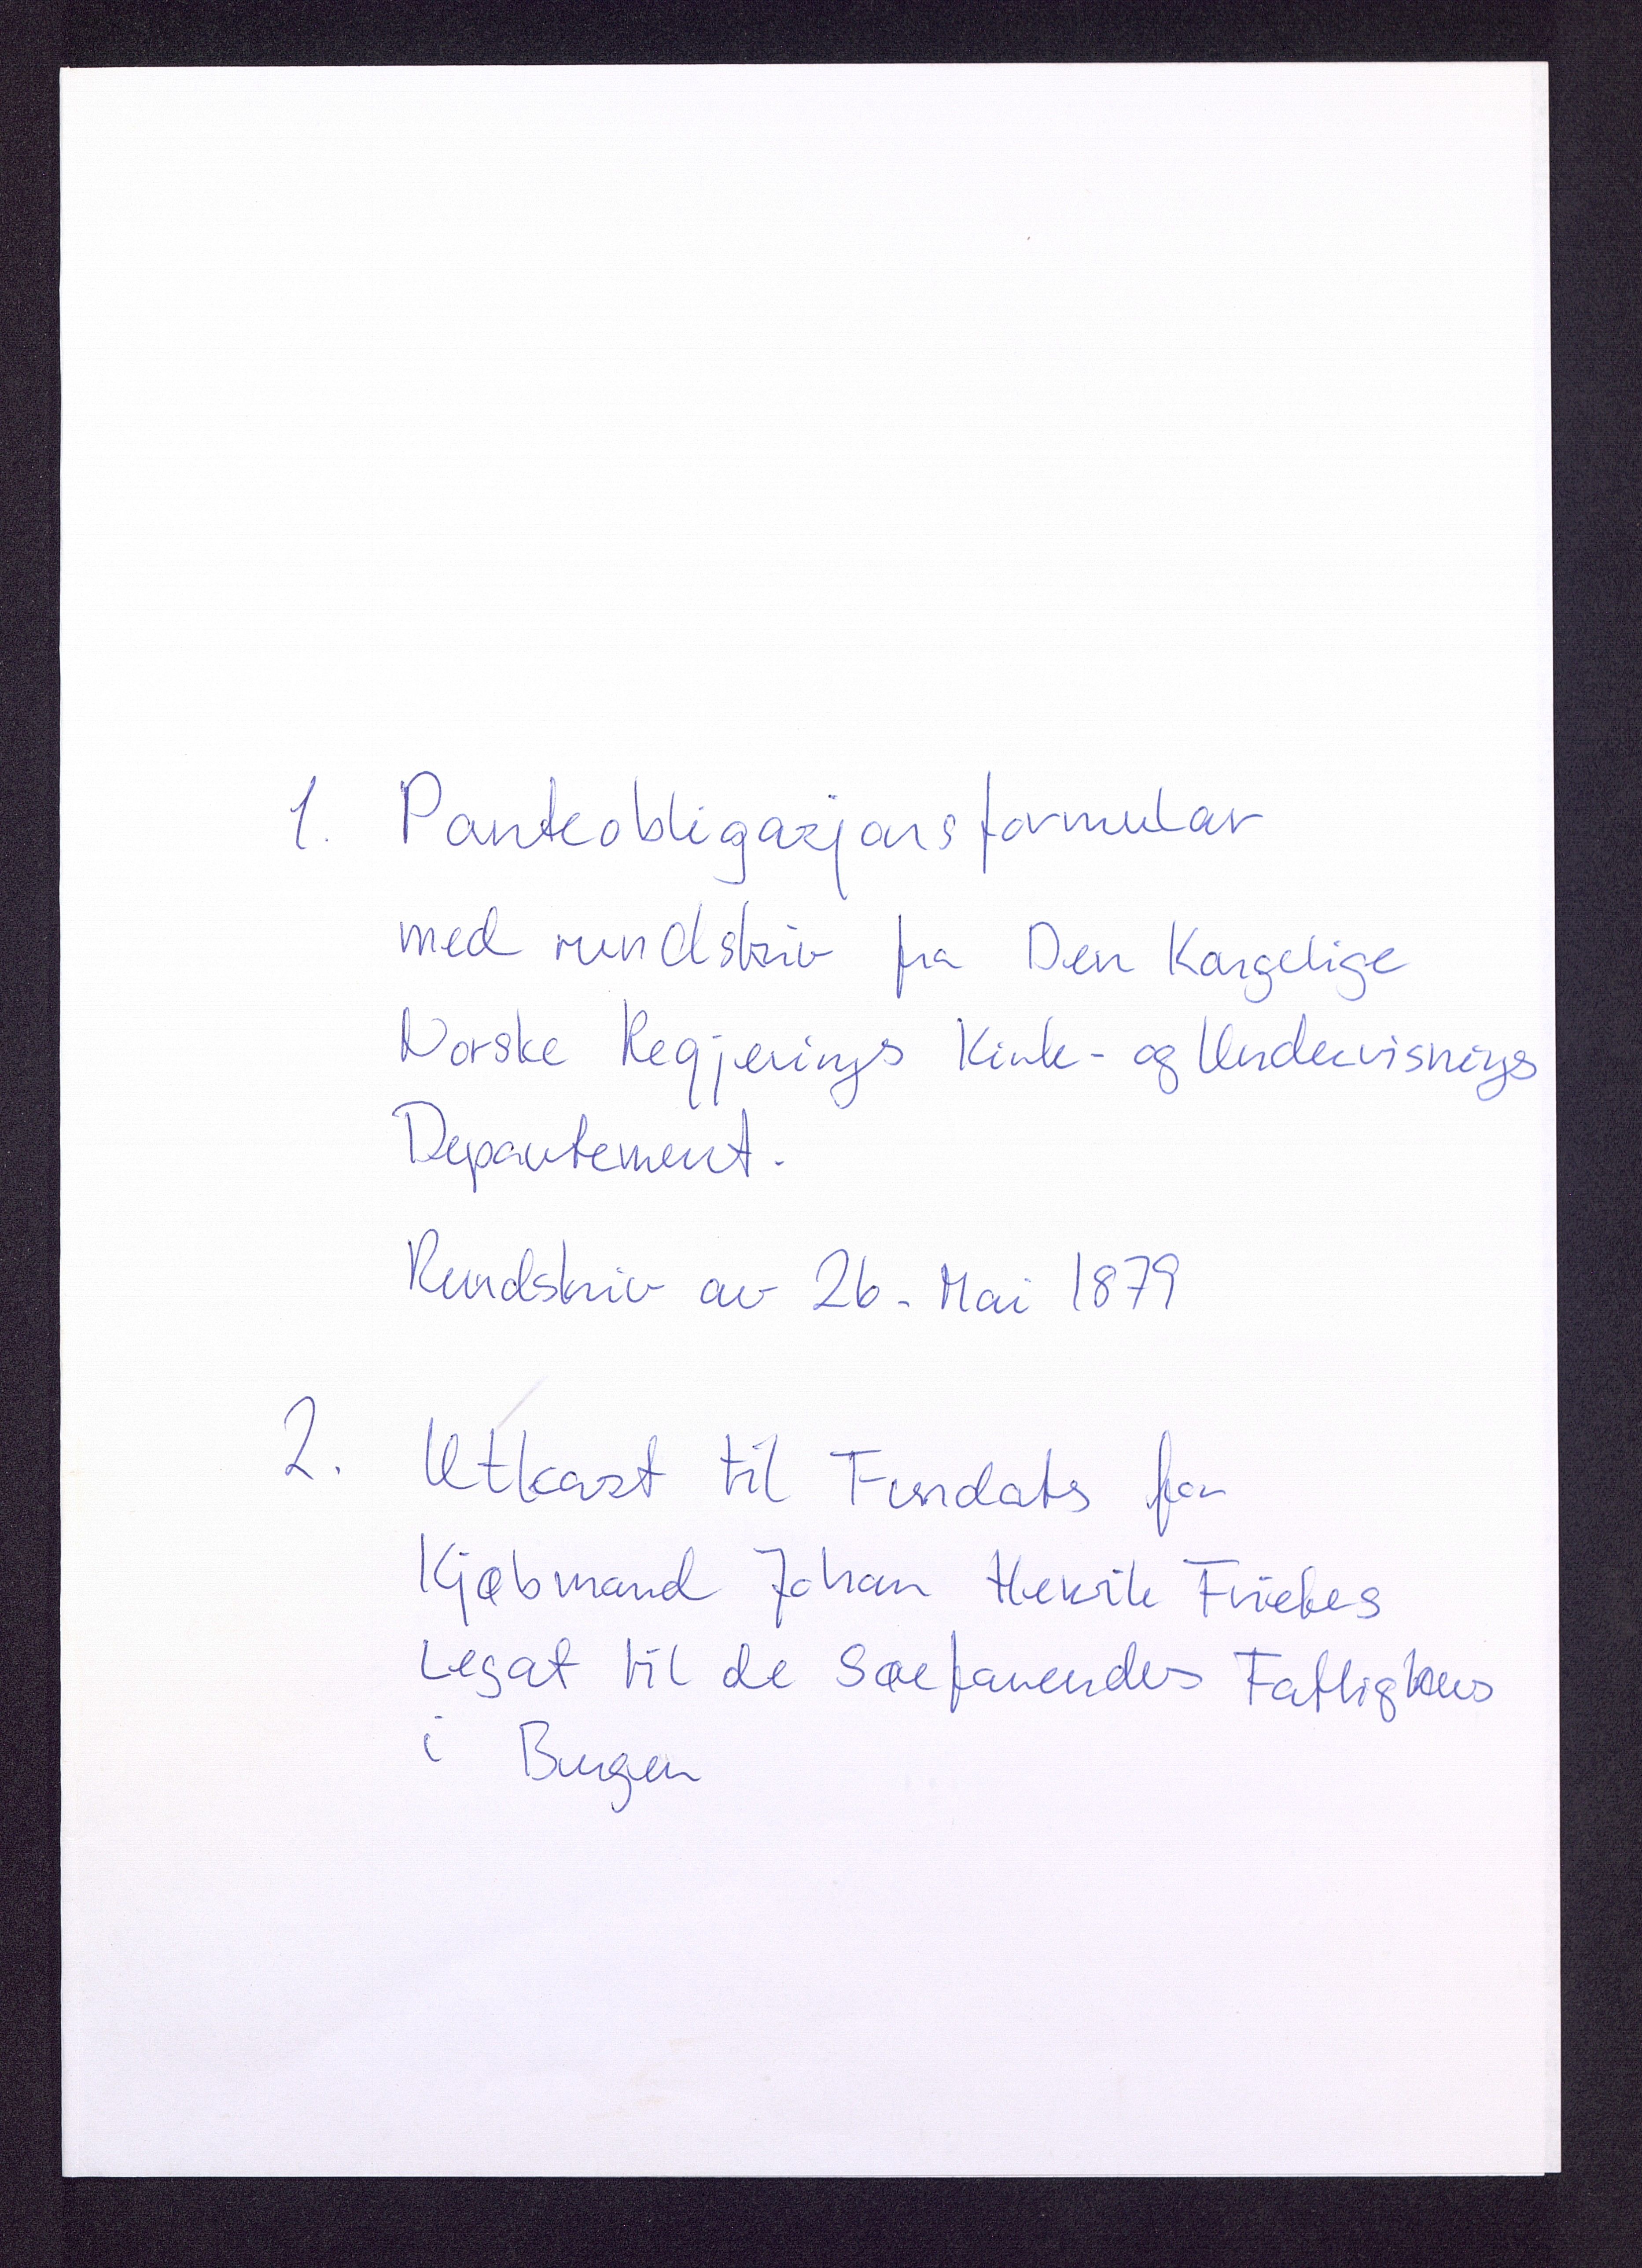 1. Panteobligasjonsformular
med rundskriv fra Den Kongelige
Norske Regjerings Kirke- og Undervisnings
Departement.
Rundskriv av 26. Mai 1879
2. Utkast til Fundats for
Kjøbmand Johan Henrik Friebes
Legat til de Søefarendes Fattighus
i Bergen